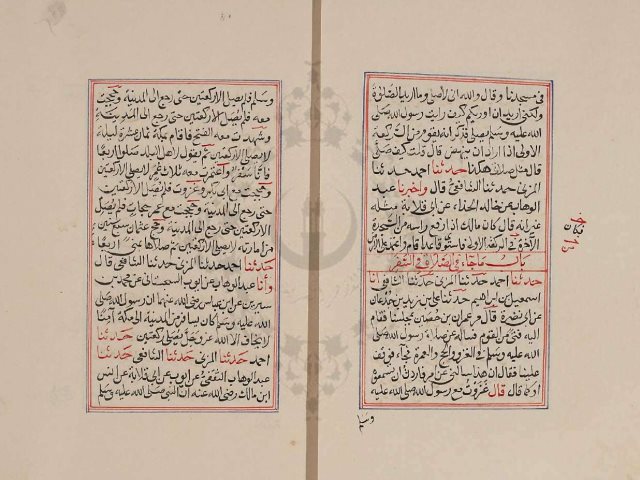 في مسجدنا وقال والله اني لاصلي وما اريد الصلوة
ولكني اريد ان اريكم كيف رايت رسول الله صلى
الله عليه وسلم يصلي فذكر انه يقوم من الركعة
الاولى اذا اراد ان ينهض قال قلت كيف صلى
قال مثل صلاتي هكذا حدثنا احمد حدثنا
المزني حدثنا الشافعي قال واخبرنا عبد
الوهاب عن خالد الحذاء عن ابي قلابة مثله
غير انه قال كان مالك اذا رفع راسه من السجدة
الآخرة في الركعة الاولى فاستوى قاعدا قام واعتمد على الارض
باب ما جاء في الصلاة في السفر
حدثنا احمد حدثنا المزني حدثنا الشافعي انا
اسمعيل بن ابراهيم حدثنا علي بن زيد بن جدعان
عن ابي نضرة قال مر عمران بن حصين بمجلسنا فقام
اليه فتى من القوم فساله عن صلاة رسول الله صلى
الله عليه وسلم في الغزو والحج والعمرة فجاء فوقف
علينا فقال ان هذا سالني عن امر فاردت ان تسمعوه
او كما قال قال غزوت مع رسول الله صلى الله عليه
وسلم
وسلم فلم يصل الا ركعتين حتى رجع الى المدينة وحججت
معه فلم يصل الا ركعتين حتى رجع الى المدينة
وشهدت معه الفتح فاقام بمكة ثمان عشرة ليلة
لا يصلي الا ركعتين ثم يقول لاهل البلد صلوا اربعا
فانا سفر واعتمرت معه ثلاث عمر لا يصلي الا ركعتين
وحججت مع ابي بكر وغزوت فلم يصل الا ركعتين
حتى رجع الى المدينة وحججت مع عمر حجات فلم يصل
الا ركعتين حتى رجع الى المدينة وحج عثمان سبع سنين
من امارته لا يصلي الا ركعتين ثم صلاها بمنى اربعا
حدثنا احمد حدثنا المزني حدثنا الشافعي قال
وانا عبد الوهاب عن ايوب السختياني عن محمد بن
سيرين عن ابن عباس رضي الله عنهما ان رسول الله صلى
الله عليه وسلم كان يسافر من المدينة الى مكة آمنا
لا يخاف الا الله عز وجل يصلي ركعتين حدثنا
احمد حدثنا المزني حدثنا الشافعي حدثنا
عبد الوهاب الثقفي عن ايوب عن ابي قلابة عن انس
ابن مالك رضي الله عنه ان النبي صلى الله عليه وسلم